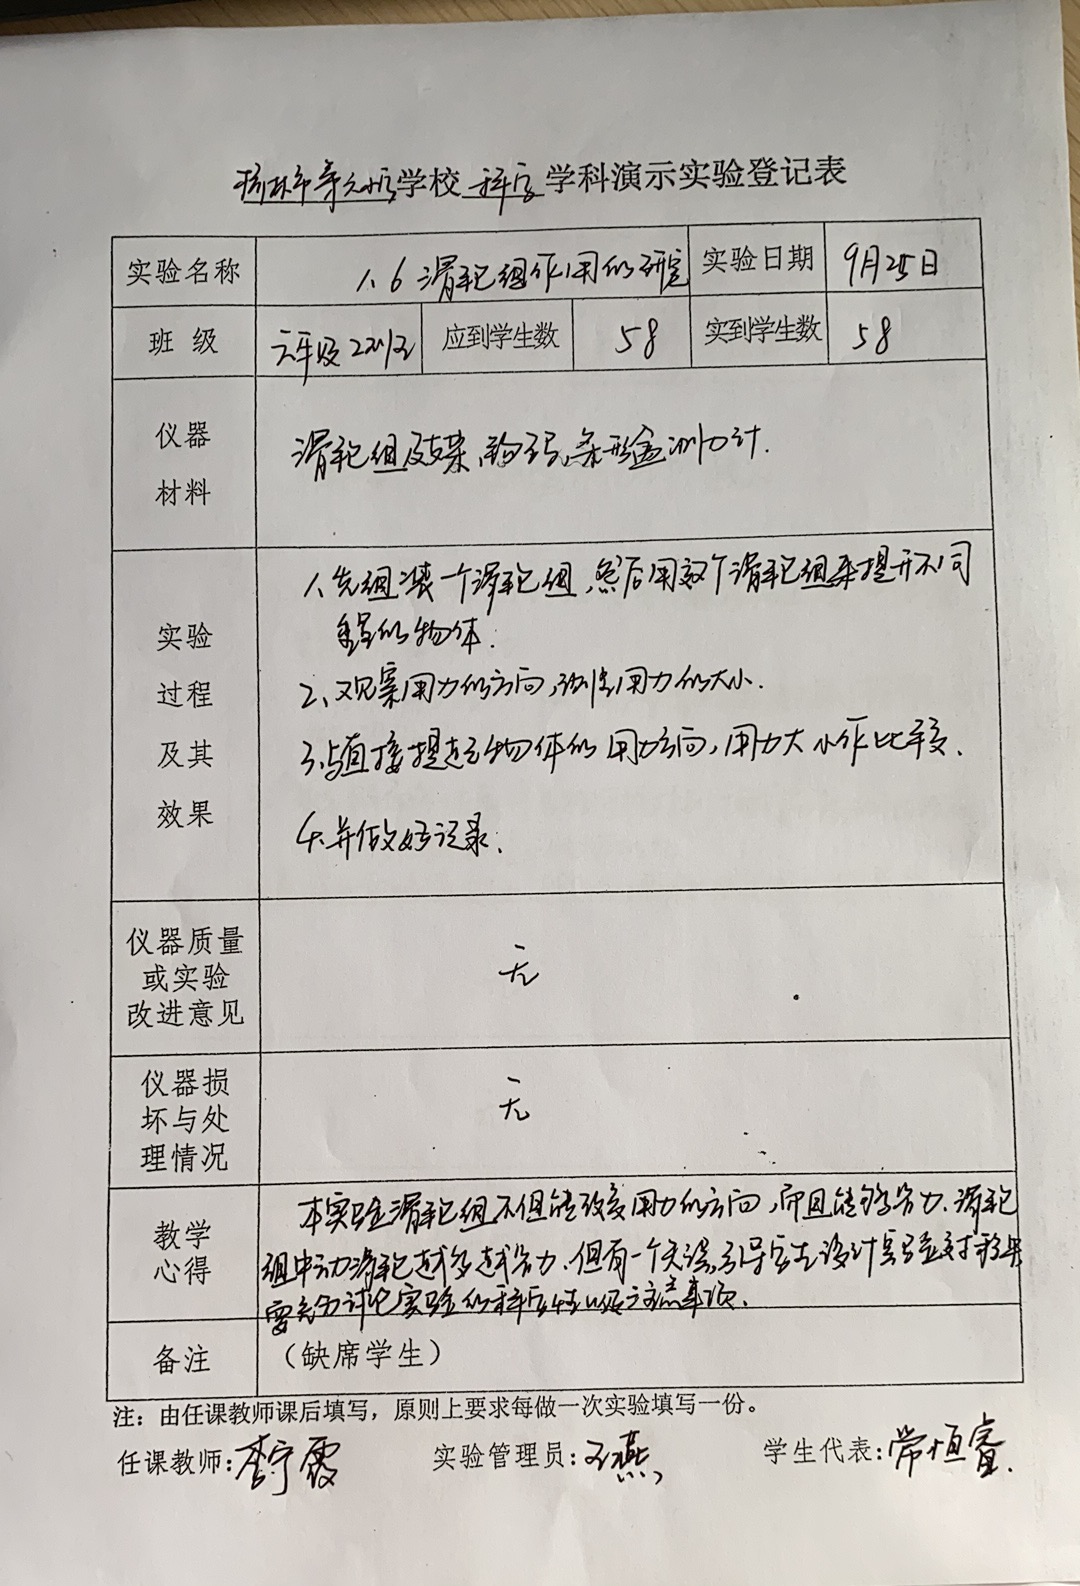 榆林市第六小学学校 科学 学科演示实验登记表
实验名称 1.6滑轮组作用的研究 实验日期 9月25日
班 级 六年级2班 应到学生数 58 实到学生数 58
仪器
材料
滑轮组及支架、钩码、条形盒测力计.
实验
过程
及其
效果
1、先组装一个滑轮组,然后用这个滑轮组来提升不同
重量的物体.
2、观察用力的方向,测量用力的大小.
3、与直接提起物体的用力方向,用力大小作比较.
4、并做好记录.
仪器质量
或实验
改进意见
无
仪器损
坏与处
理情况
无
教学
心得
本实验滑轮组不但能改变用力的方向,而且能够省力.滑轮
组中动滑轮越多越省力.但有一个失误,引导学生设计实验时
要充分讨论实验的科学性以及注意事项.
备注 (缺席学生)
注:由任课教师课后填写,原则上要求每做一次实验填写一份。
任课教师:李宁霞 实验管理员:王燕 学生代表:常恒睿